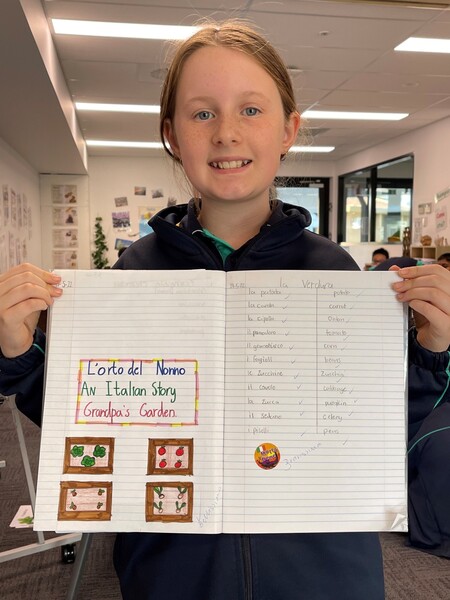 L'orto del Nonno
An Italian Story
Grandpa's Garden
La Verdura
la patata potato
la carota carrot
la cipolla Onion
il pomodoro tomato
il granoturco corn
i fagioli beans
il zucchine Zucchini
il cavolo cabbage
la zucca pumpkin
il sedano celery
i piselli peas